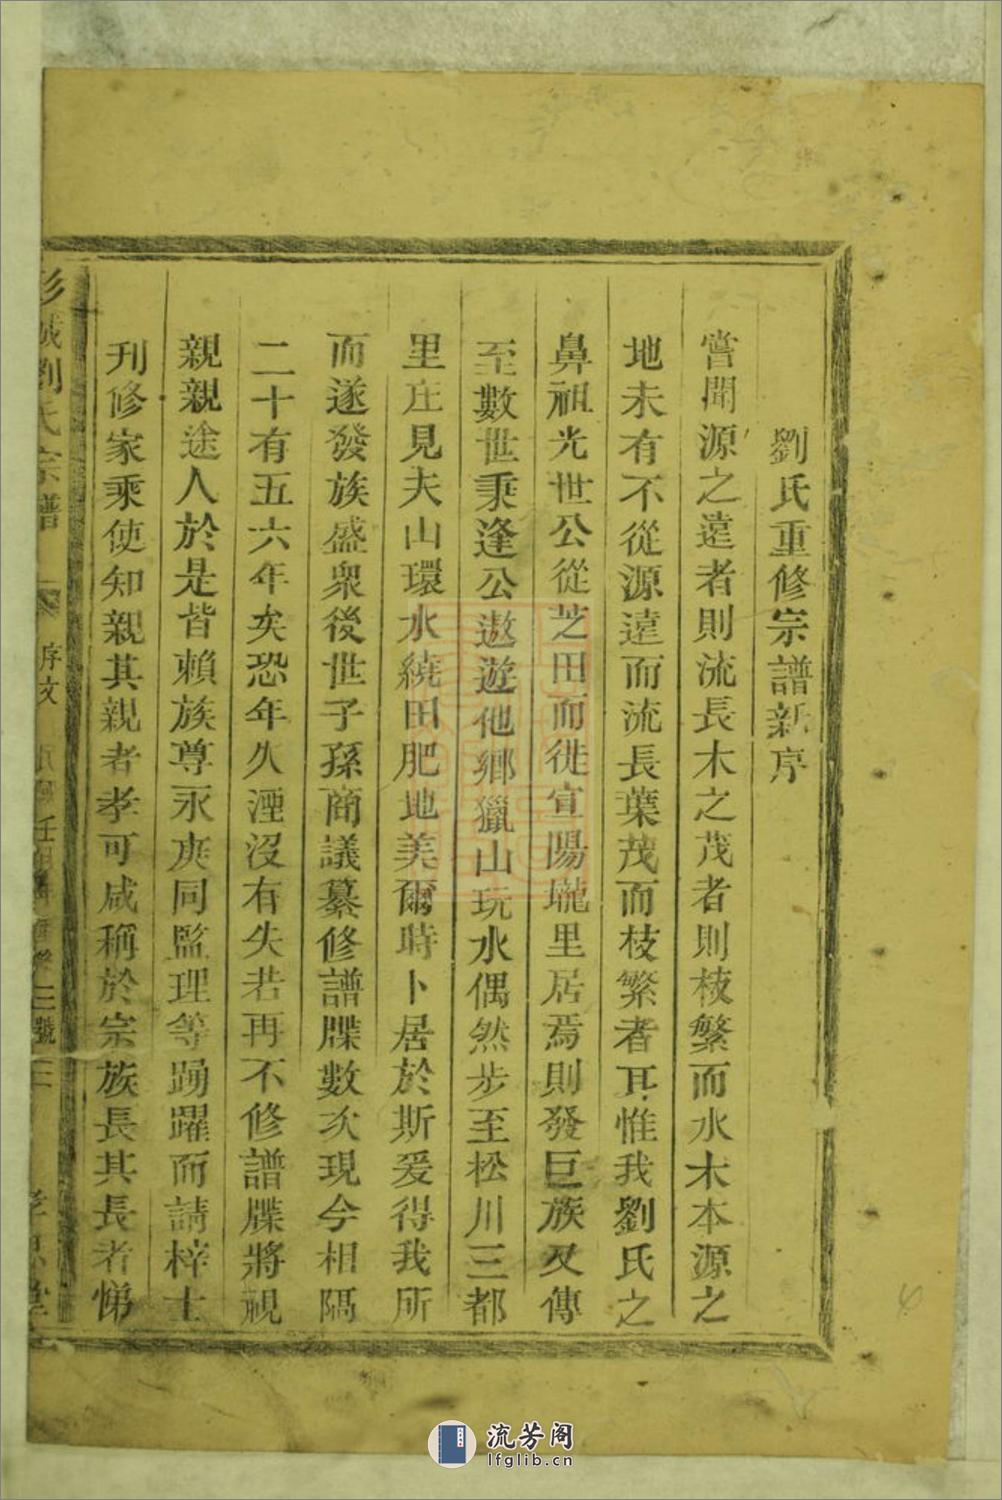 劉氏重修宗譜新序
嘗聞源之遠者則流長木之茂者則枝繁而水木本源之
地未有不從源遠而流長葉茂而枝繁者耳惟我劉氏之
鼻祖光世公從芝田而徙宣陽壠里居焉則發巨族又傳
至數世秉逢公遨遊他鄉獵山玩水偶然步至松川三都
里庄見夫山環水繞田肥地美爾時卜居於斯爰得我所
而遂發族盛衆後世子孫商議纂修譜牒數次現今相隔
二十有五六年矣恐年久湮沒有失若再不修譜牒將視
親親途人於是皆賴族尊永庚同監理等踴躍而請梓士
刋修家乘使知親其親者孝可咸稱於宗族長其長者悌
彭城劉氏宗譜 序文 號
流芳阁
lfglib.cn